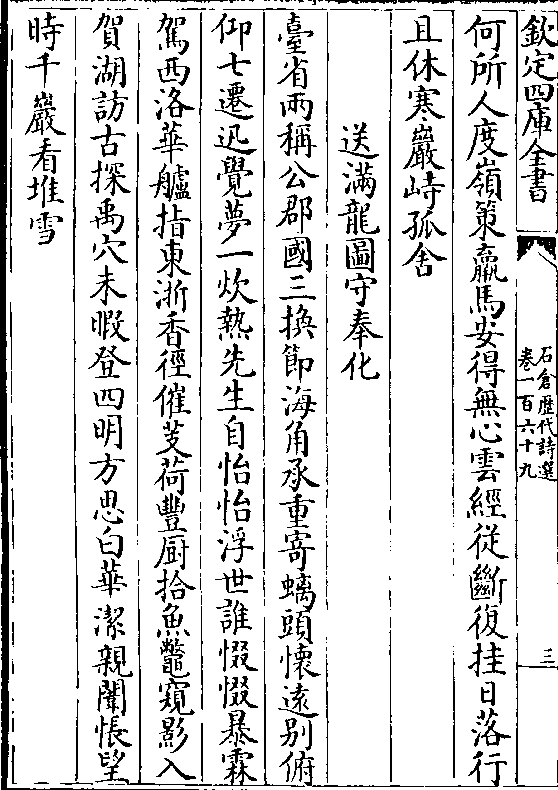 欽定四庫全書
石倉歷代詩選
卷一百六十九
三
何所人度嶺策羸馬安得無心雲經從斷復挂日落行
且休寒巖峙孤舍
送滿龍圖守奉化
臺省兩稱公郡國三換節海角承重寄螭頭懷遠别俯
仰七遷迅覺夢一炊熱先生自怡怡浮世誰惙惙暴霖
駕西洛華艫指東浙香徑催芰荷豐厨拾魚鼈窺影入
賀湖訪古探禹穴未暇登四明方思白華潔親闈悵望
時千巖看堆雪